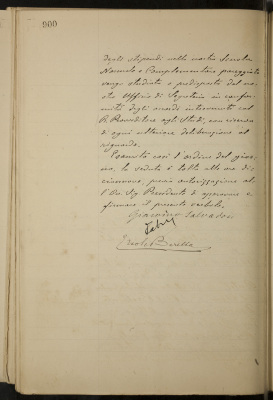 900
degli stipendi nelle nostre Scuole
Normale e Complementare pareggiate
venga studiata e predisposta dal no-
stro Ufficio di Segreteria in confor-
mità degli accordi intervenuti col
R. Provveditore agli Studi, con riserva
di ogni ulteriore deliberazione al
riguardo.
Esaurito così l'ordine del gior-
no, la seduta è tolta alle ore di-
ciannove, previa autorizzazione al-
l'On. Sig. Presidente di approvare e
firmare il presente verbale.
Giacomo Salvadori